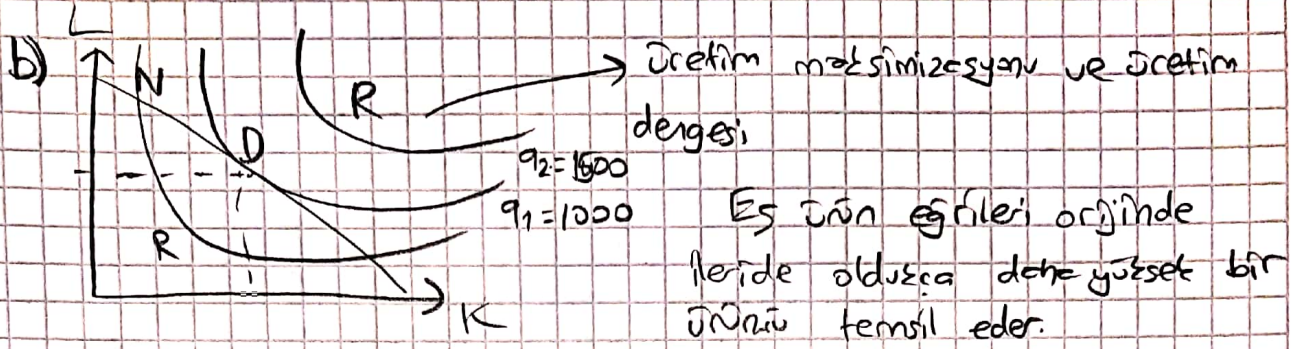 b)
L
N
R
D
R
K
q2=1500
q1=1000
Üretim maksimizasyonu ve üretim
dengesi
Eş ürün eğrileri orijinde
ileride oldukça daha yüksek bir
ürünü temsil eder.